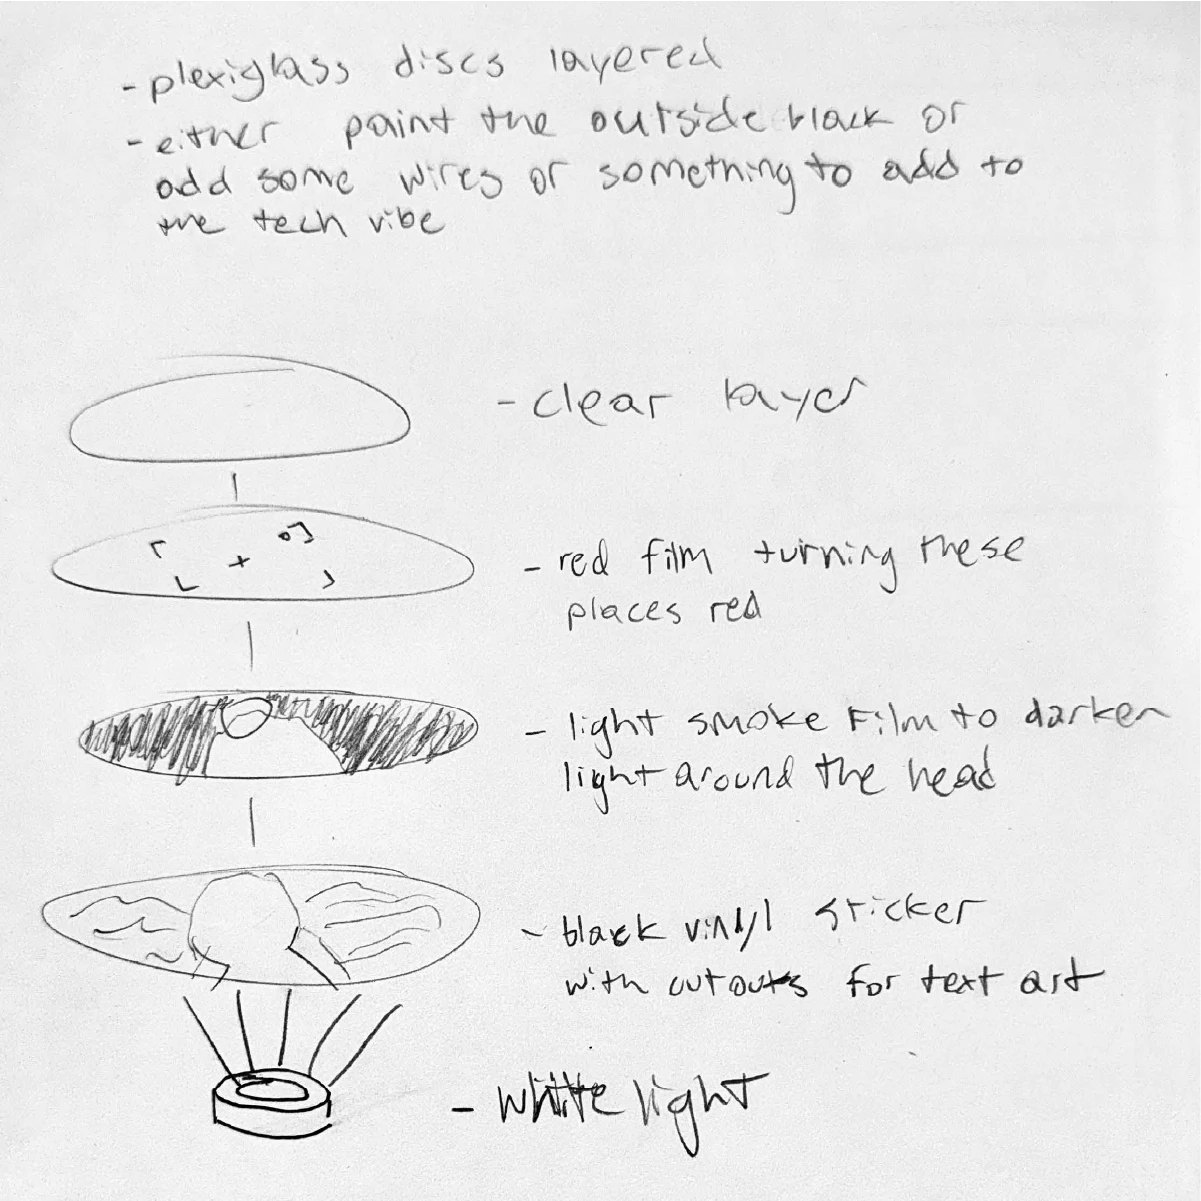 - plexiglass discs layered
- either paint the outside black or
add some wires or something to add to
the tech vibe
- clear layer
- red film turning these
places red
- light smoke Film to darken
light around the head
- black vinyl sticker
with cutouts for text art
- white light